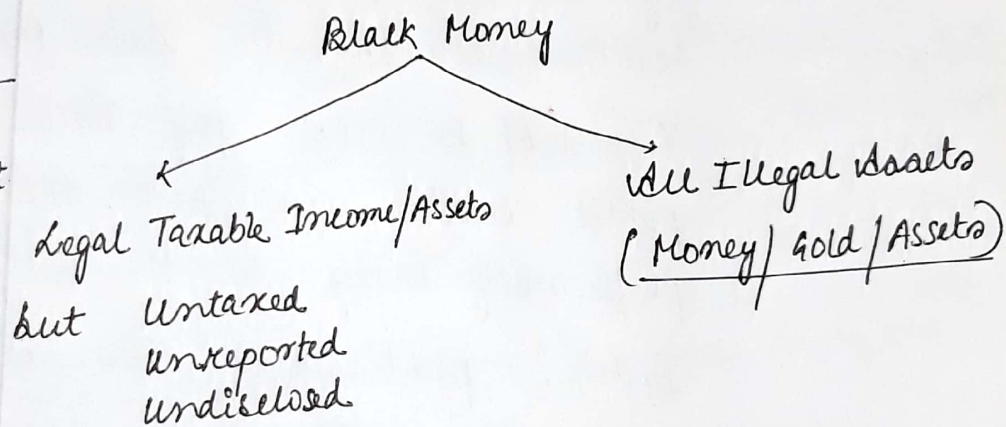 Black Money
Legal Taxable Income/Assets
but Untaxed
Unreported
Undisclosed
All Illegal Assets
(Money/Gold/Assets)